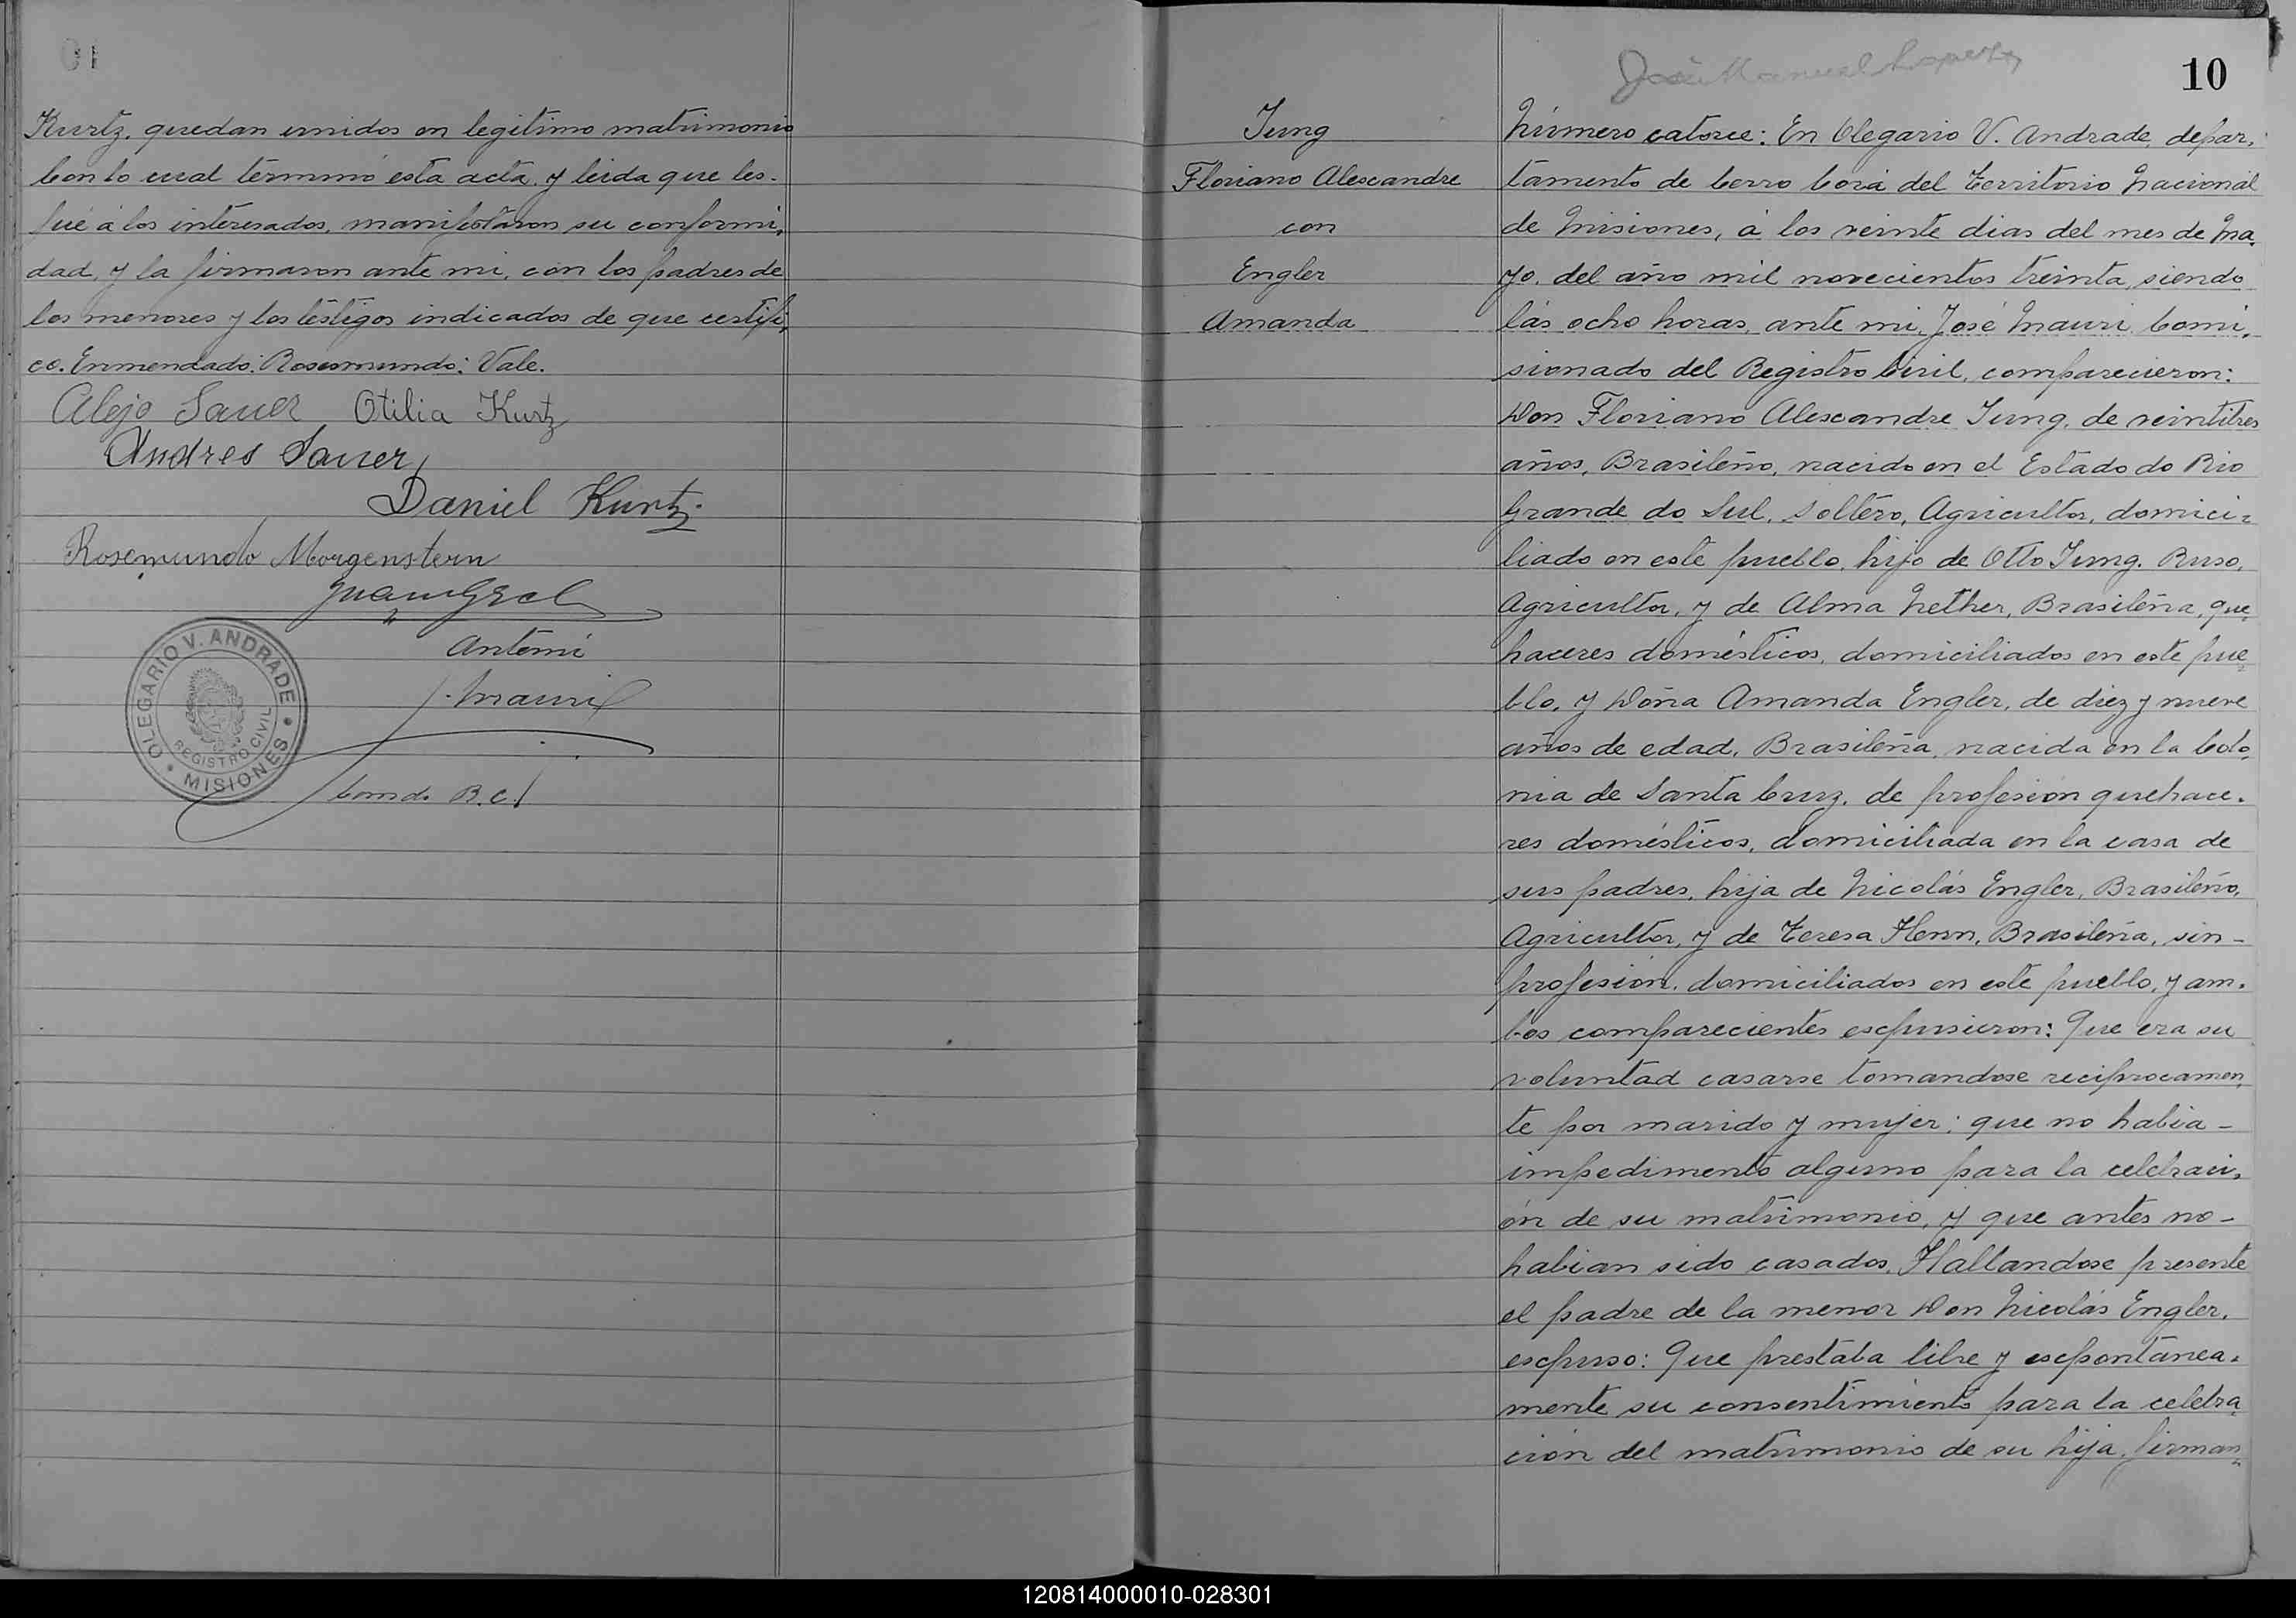 Kurtz, quedan unidos en legitimo matrimonio
Con lo cual terminó esta acta, y leida que les
fué á los interesados, manifestaron su conformi,
dad, y la firmaron ante mi, con los padres de
los menores y los testigos indicados de que certifi,
co. Enmendado: Rosemundo: Vale.
Alejo Sauer Otilia Kurtz
Andres Sauer
Daniel Kurtz
Rosemundo Morgenstern
Antemi
J. Mauri
Comdo R.C.
OLEGARIO V. ANDRADE
REGISTRO CIVIL
MISIONES
José Manuel
10
Jung
Floriano Alexandre
con
Engler
Amanda
Número catorce: En Olegario V. Andrade, depar,
tamento de Cerro Corá del Territorio Nacional
de Misiones, á los veinte dias del mes de Ma,
yo, del año mil novecientos treinta, siendo
las ocho horas, ante mi, José Mauri, Comi,
sionado del Registro Civil, comparecieron:
Don Floriano Alexandre Jung, de veintitres
años, Brasileño, nacido en el Estado do Rio
Grande do Sul, Soltero, Agricultor, domici=
liado en este pueblo, hijo de Otto Jung. Ruso,
Agricultor, y de Alma Nether, Brasileña, que,
haceres domésticos, domiciliados en este pue
blo, y Doña Amanda Engler, de diez y nueve
años de edad, Brasileña, nacida en la Colo,
nia de Santa Cruz, de profesion quehace.
res domésticos, domiciliada en la casa de
sus padres, hija de Nicolás Engler, Brasileño,
Agricultor, y de Teresa Henn, Brasileña, sin-
profesión, domiciliados en este pueblo, y am.
bos comparecientes expusieron: Que era su
voluntad casarse tomandose reciprocamen,
te por marido y mujer; que no habia-
impedimento alguno para la celebraci,
ón de su matrimonio, y que antes no-
habian sido casados. Hallandose presente
el padre de la menor Don Nicolás Engler,
expuso: Que prestaba libre y expontánea.
mente su consentimiento para la celebra,
ción del matrimonio de su hija, firman,
120814000010-028301